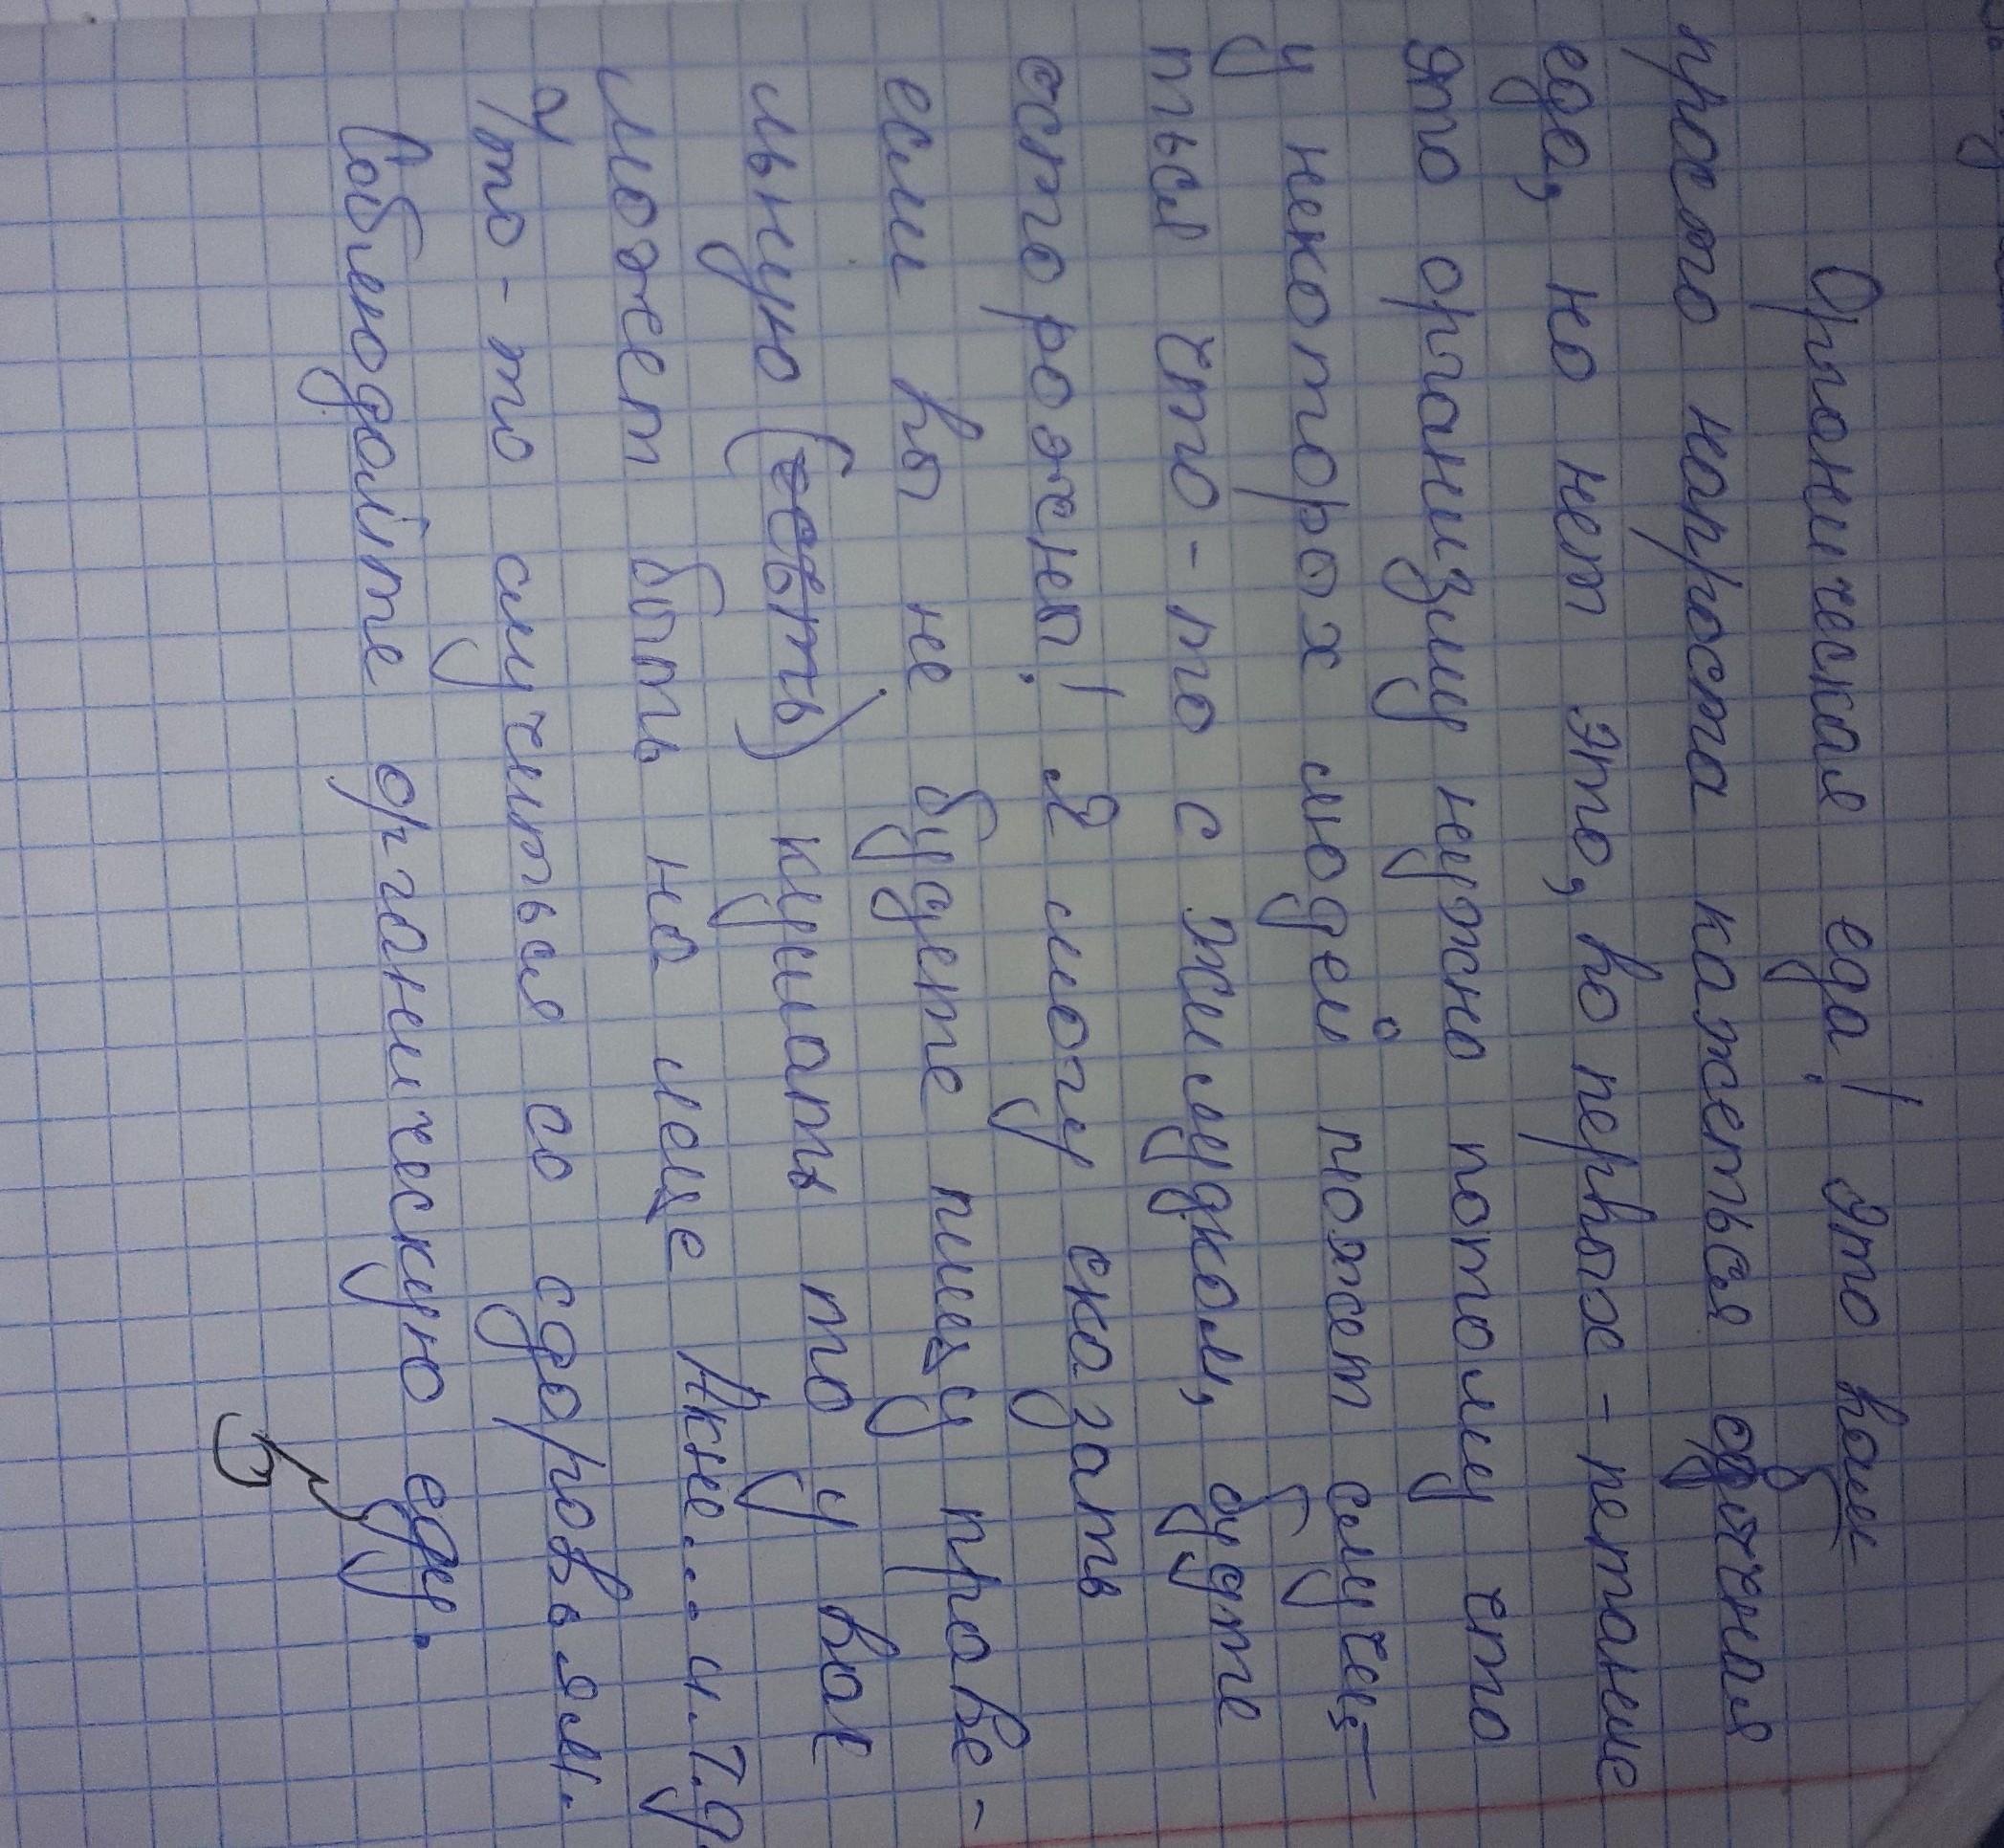 Органическая еда! Это вам
просто напроста кажеться обычная
еда, но нет это, во первых - петание
это организму нужно потому что
у некоторох людей может случи-
ться что-то с жилудком, будте
осторожны! Я могу сказать
если вы не будете пищу праве-
льную (есть) кушать то у вас
может быть на леце Акне... и.т.д.
Что-то случиться со сдоровьям.
Соблюдайте органическую еду.